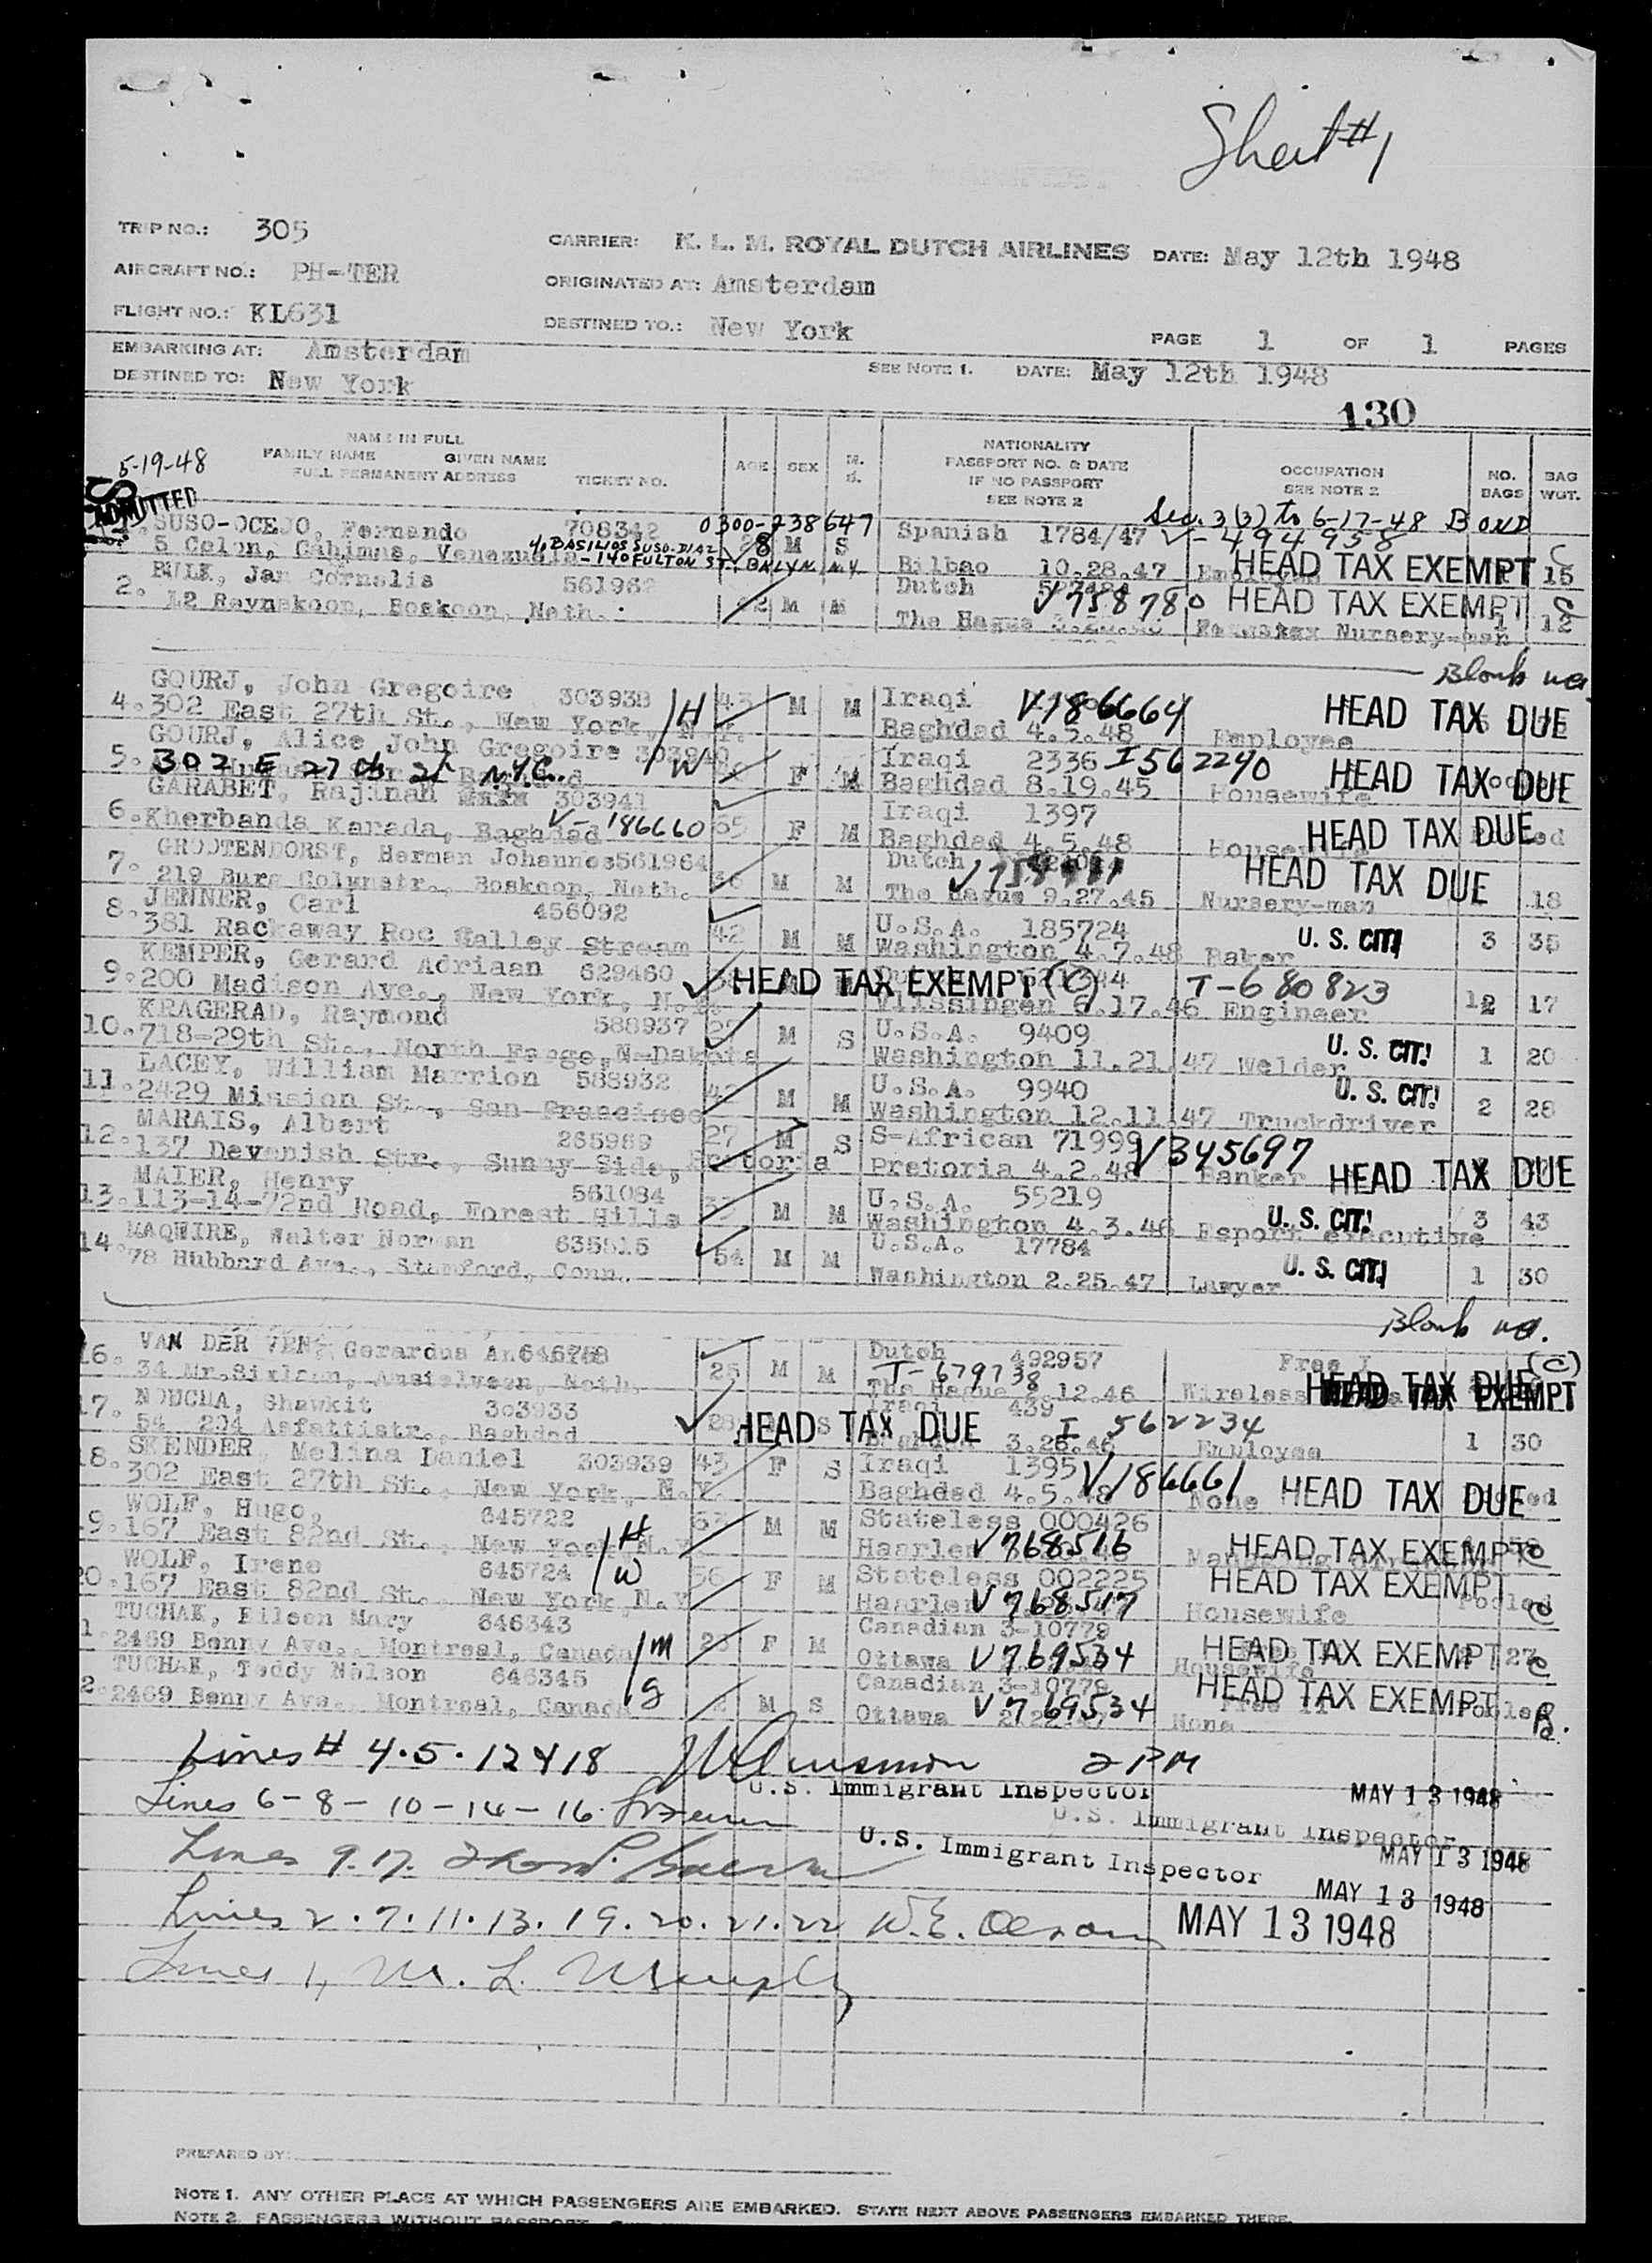 Sheet #1
TRIP NO.: 305
CARRIER: K. L. M. ROYAL DUTCH AIRLINES DATE: May 12th 1948
AIRCRAFT NO.: PH-TER
ORIGINATED AT: Amsterdam
FLIGHT NO.: KL631
DESTINED TO.: New York
PAGE 1 OF 1 PAGES
EMBARKING AT: Amsterdam
SEE NOTE 1. DATE: May 12th 1948
DESTINED TO: New York
130
NAME IN FULL
FAMILY NAME GIVEN NAME
FULL PERMANENT ADDRESS TICKET NO.
AGE SEX M. S.
NATIONALITY
PASSPORT NO. & DATE
IF NO PASSPORT
SEE NOTE 2
OCCUPATION
SEE NOTE 2
NO. BAGS
BAG WGT.
5-19-48
ADMITTED
SUSO-OCEJO, Fernando 708342 0300-238647 Spanish 1784/47 Sec. 3(3) to 6-17-48 BOND
V-494958
5 Colon, Cabimas, Venezuela % BASILIOS SUSO-DIAZ - 140 FULTON ST., BKLYN NY 28 M S Bilbao 10.28.47 HEAD TAX EXEMPT 15 C
2. BULK, Jan Cornelis 561962 Dutch V758780 HEAD TAX EXEMPT C
12 Reynekoop, Boskoop, Neth. M M The Hague Nursery-man 1 12
Blank
4. GOURJ, John Gregoire 303938 H 43 M M Iraqi V186664 HEAD TAX DUE
302 East 27th St., New York, N.Y. Baghdad 4.5.48 Employee
5. GOURJ, Alice John Gregoire 303940 W F M Iraqi 2336 I562240 HEAD TAX DUE
302 E 27th St N.Y.C. Baghdad 8.19.45 Housewife
6. GARABET, Rajinah 303941 65 F M Iraqi 1397
Kherbanda Karada, Baghdad V-186660 Baghdad 4.5.48 Housewife HEAD TAX DUE
7. GROOTENDORST, Herman Johannes 561964 36 M M Dutch HEAD TAX DUE
219 Burg Colynstr., Boskoop, Neth. The Hague 9.27.45 Nursery-man 18
8. JENNER, Carl 456092 42 M M U.S.A. 185724 U. S. CIT.
381 Rackaway Roc Valley Stream Washington 4.7.48 Baker 3 35
9. KEMPER, Gerard Adriaan 629460 HEAD TAX EXEMPT (C) T-680823
200 Madison Ave., New York, N.Y. Vlissingen 6.17.46 Engineer 17
10. KRAGERAD, Raymond 588937 27 M S U.S.A. 9409 U. S. CIT.
718-29th St., North Fargo, N-Dakota Washington 11.21.47 Welder 1 20
11. LACEY, William Marrion 588932 M M U.S.A. 9940 U. S. CIT.
2429 Mission St., San Francisco Washington 12.11.47 Truckdriver 2 28
12. MARAIS, Albert 265989 27 M S S-African 71999 V345697
137 Devenish Str., Sunny Side, Pretoria Pretoria 4.2.48 Banker HEAD TAX DUE
13. MAIER, Henry 561084 M M U.S.A. 55219 U. S. CIT.
113-14-72nd Road, Forest Hills Washington 4.3.46 Esport executive 3 43
14. MAQWIRE, Walter Norman 635515 54 M M U.S.A. 17784 U. S. CIT.
78 Hubbard Ave., Stamford, Conn. Washington 2.25.47 Lawyer 1 30
Blank
16. VAN DER VEN, Gerardus An. 25 M M Dutch 492957 Free I (C)
34 Mr.Sixlaan, Amstelveen, Neth. T-679738 The Hague 12.46 Wireless HEAD TAX DUE HEAD TAX EXEMPT
17. NOUCHA, Shawkit 303933 28 S HEAD TAX DUE Iraqi 439 I 562234
54 204 Asfattistr., Baghdad 3.26.46 Employee 1 30
18. SKENDER, Melina Daniel 303939 43 F S Iraqi 1395 V186661
302 East 27th St., New York, N.Y. Baghdad 4.5.48 None HEAD TAX DUE
19. WOLF, Hugo, 645722 H 67 M M Stateless 000426
167 East 82nd St., New York, N.Y. Haarlem V768516 HEAD TAX EXEMPT C
20. WOLF, Irene 645724 W 56 F M Stateless 002225 HEAD TAX EXEMPT
167 East 82nd St., New York, N.Y Haarlem V768517 Housewife Pooled C
21. TUCHAK, Eileen Mary 646343 M F M Canadian 3-10779
2469 Benny Ave., Montreal, Canada Ottawa V769534 Housewife HEAD TAX EXEMPT 27 C
22. TUCHAK, Teddy Nelson 646345 S M S Canadian 3-10779
2469 Benny Ave., Montreal, Canada Ottawa V769534 None HEAD TAX EXEMPT Pooled
Lines # 4.5.12 & 18 2 PM
U.S. Immigrant Inspector MAY 13 1948
Lines 6-8-10-14-16
U.S. Immigrant Inspector MAY 13 1948
Lines 9.17.
U.S. Immigrant Inspector MAY 13 1948
Lines 2.7.11.13.19.20.21.22 W.E. Olson MAY 13 1948
Lines 1, M. L. Murphy
PREPARED BY:
NOTE 1. ANY OTHER PLACE AT WHICH PASSENGERS ARE EMBARKED. STATE NEXT ABOVE PASSENGERS EMBARKED THERE.
NOTE 2. PASSENGERS WITHOUT PASSPORT